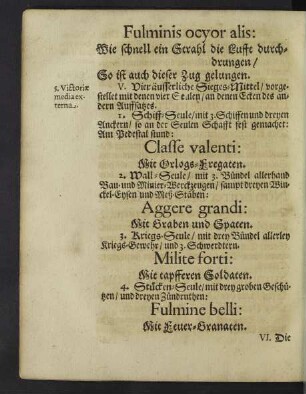 Fulminis ocyor alis:
Wie schnell ein Strahl die Lufft durch-
drungen/
So ist auch dieser Zug gelungen.
5. Victoriæ
media ex-
terna.
V. Vier äusserliche Sieges-Mittel/ vorge-
stellet mit denen vier Seulen/ an denen Ecken des an-
dern Auffsatzes.
1. Schiff-Seule/ mit 3. Schiffen und dreyen
Anckern/ so an der Seulen Schafft fest gemachet:
Am Pedestal stund:
Classe valenti:
Mit Orlogs-Fregaten.
2. Wall-Seule/ mit 3. Bündel allerhand
Bau- und Minier-Werckzeugen/ sampt dreyen Win-
ckel-Eysen und Meß-Stäben:
Aggere grandi:
Mit Graben und Spaten.
3. Kriegs-Seule/ mit drey Bündel allerley
Kriegs-Gewehr/ und 3. Schwerdtern.
Milite forti:
Mit tapfferen Soldaten.
4. Stücken-Seule/ mit drey groben Geschü-
tzen/ und dreyen Zündruthen:
Fulmine belli:
Mit Feuer-Granaten.
VI. Die